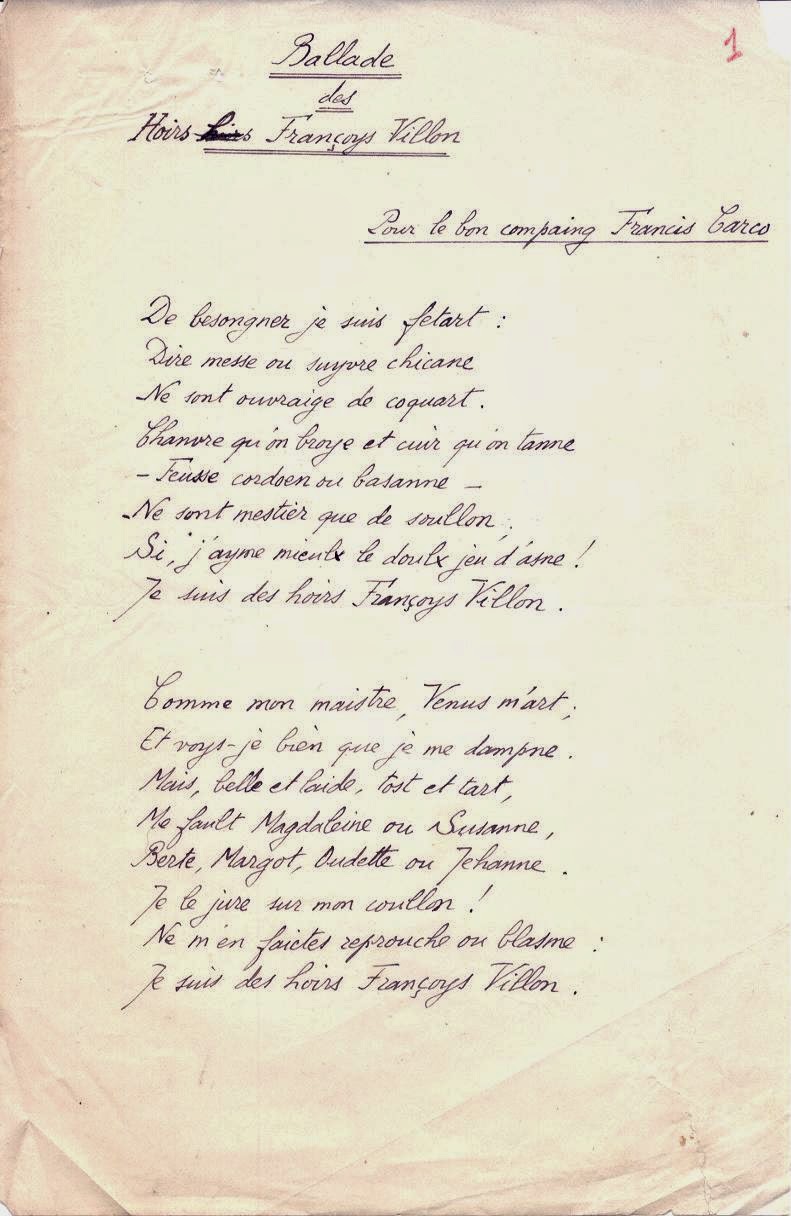 1
Ballade
des
Hoirs hoirs Françoys Villon
Pour le bon compaing Francis Carco
De besongner je suis fetart :
Dire messe ou suyvre chicane
Ne sont ouvraige de coquart.
Chanvre qu'on broye et cuir qu'on tanne
– Feusse cordoen ou basanne –
Ne sont mestier que de soullon ;
Si, j'ayme mieulx le doulx jeu d'asne !
Je suis des hoirs Françoys Villon .
Comme mon maistre, Venus m'art ;
Et voys-je bien que je me dampne .
Mais, belle et laide, tost et tart,
Me fault Magdaleine ou Susanne,
Berte, Margot, Oudette ou Jehanne .
Je le jure sur mon coullon !
Ne m'en faictes reprouche ou blasme :
Je suis des hoirs Françoys Villon .